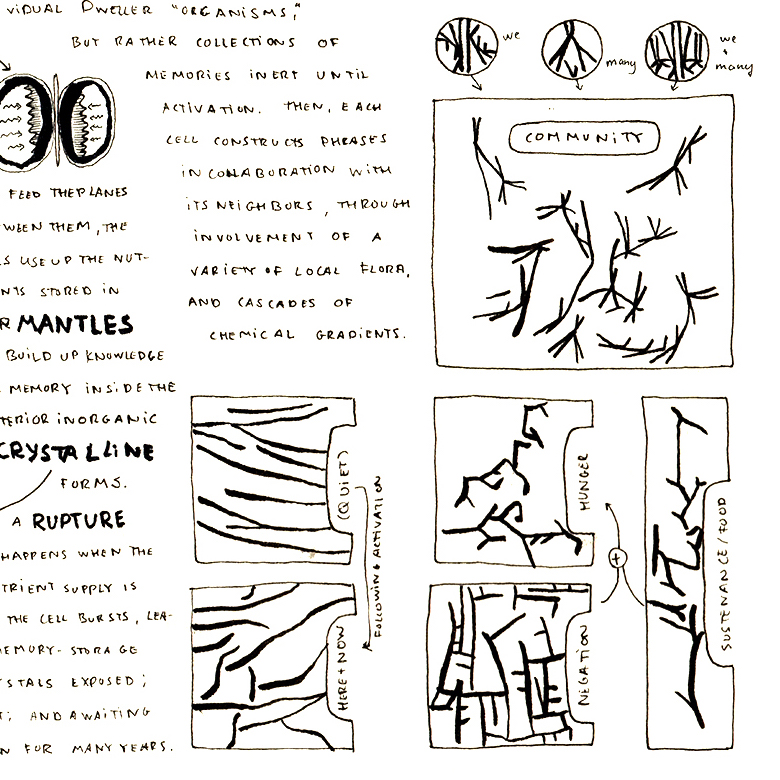 VIDUAL DWELLER "ORGANISMS,"
BUT RATHER COLLECTIONS OF
MEMORIES INERT UNTIL
ACTIVATION. THEN, EACH
CELL CONSTRUCTS PHRASES
IN COLLABORATION WITH
ITS NEIGHBORS, THROUGH
INVOLVEMENT OF A
VARIETY OF LOCAL FLORA,
AND CASCADES OF
CHEMICAL GRADIENTS.
FEED THE PLANES
WEEN THEM, THE
S USE UP THE NUT-
NTS STORED IN
R MANTLES
BUILD UP KNOWLEDGE
MEMORY INSIDE THE
TERIOR INORGANIC
CRYSTALLINE
FORMS.
A RUPTURE
HAPPENS WHEN THE
TRIENT SUPPLY IS
THE CELL BURSTS, LEA-
EMORY-STORAGE
STALS EXPOSED;
T; AND AWAITING
N FOR MANY YEARS.
we
many
we
+
many
COMMUNITY
(QUIET)
FOLLOWING ACTIVATION
HERE + NOW
HUNGER
+
NEGATION
SUSTENANCE/FOOD